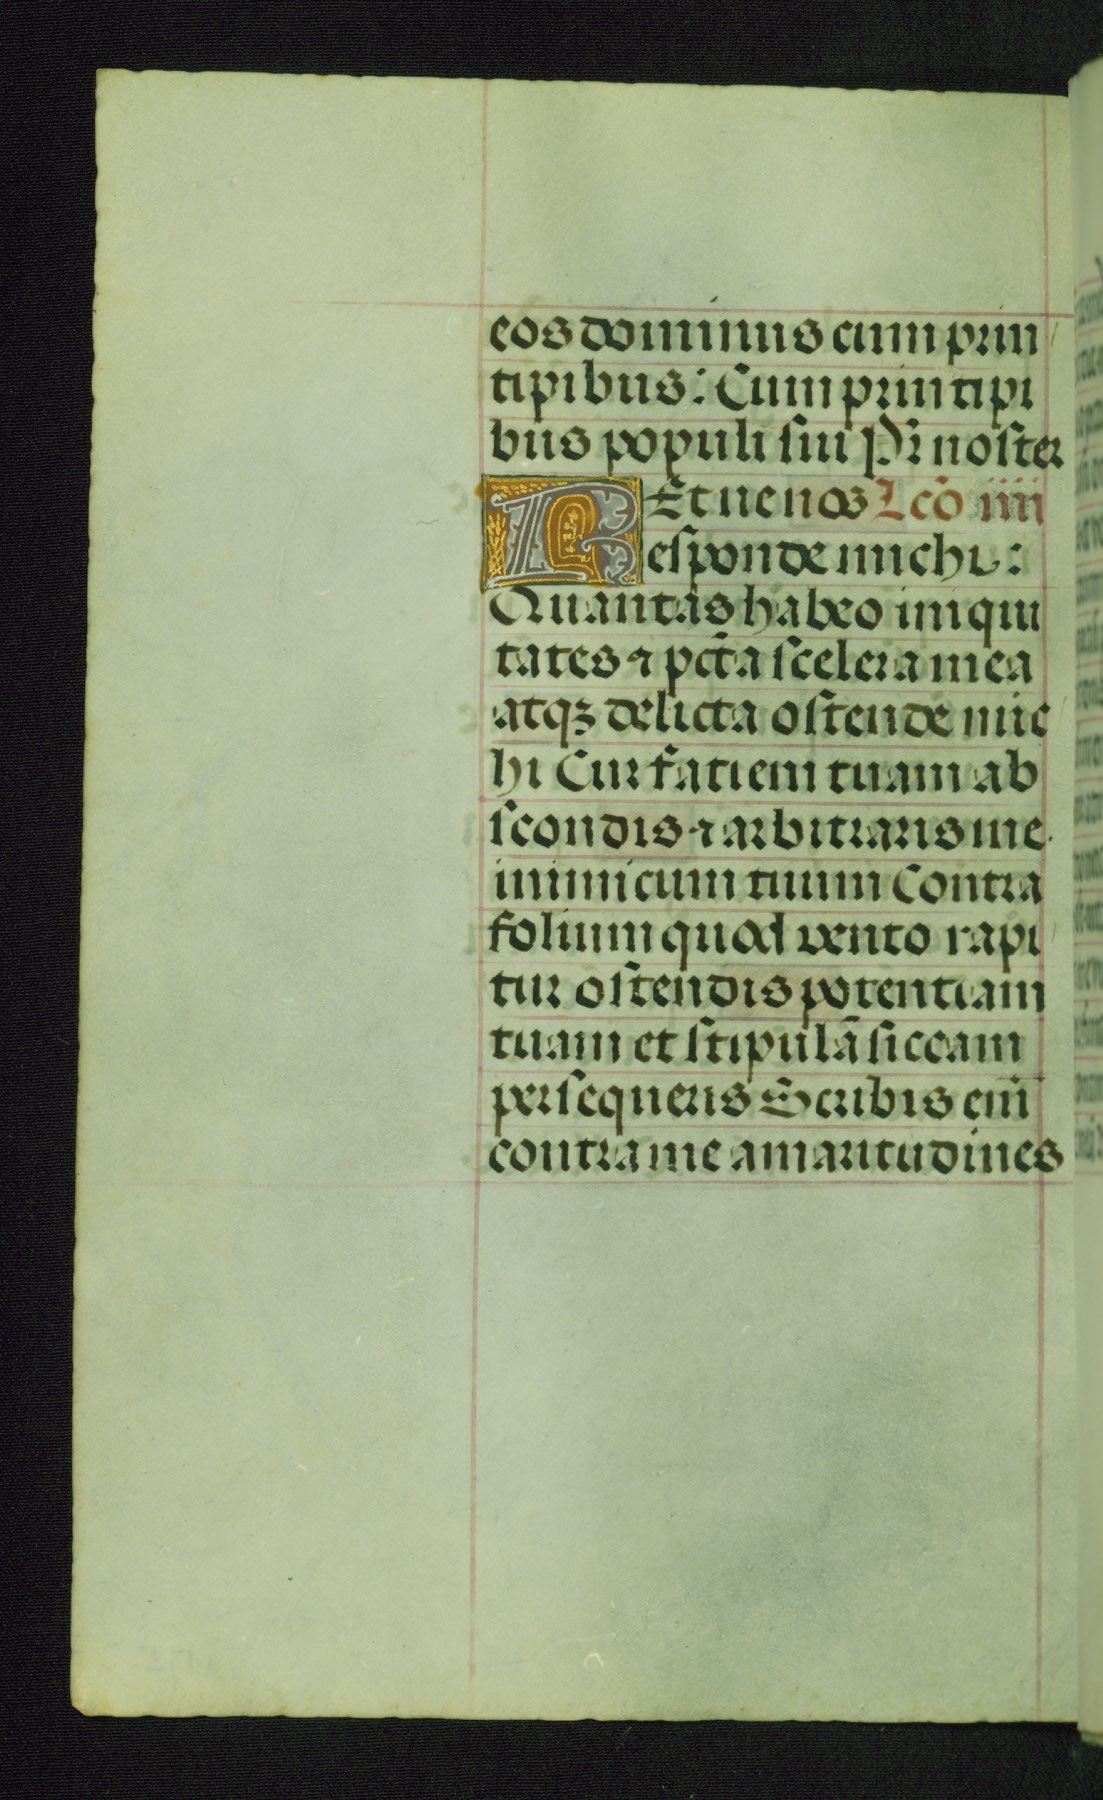 eos dominus cum prin
tipibus: Cum printipi
bus populi sui Pr̃ noster
Et ne nos Lcõ iiii
Responde michi:
Quantas habeo iniqui
tates ⁊ pctã scelera mea
atqꝫ delicta ostende mic
hi Cur fatiem tuam ab
scondis ⁊ arbitraris me
inimicum tuum Contra
folium quod vento rapi
tur ostendis potentiam
tuam et stipulã siccam
persequeris Scribis eni᷑
contra me amaritudines